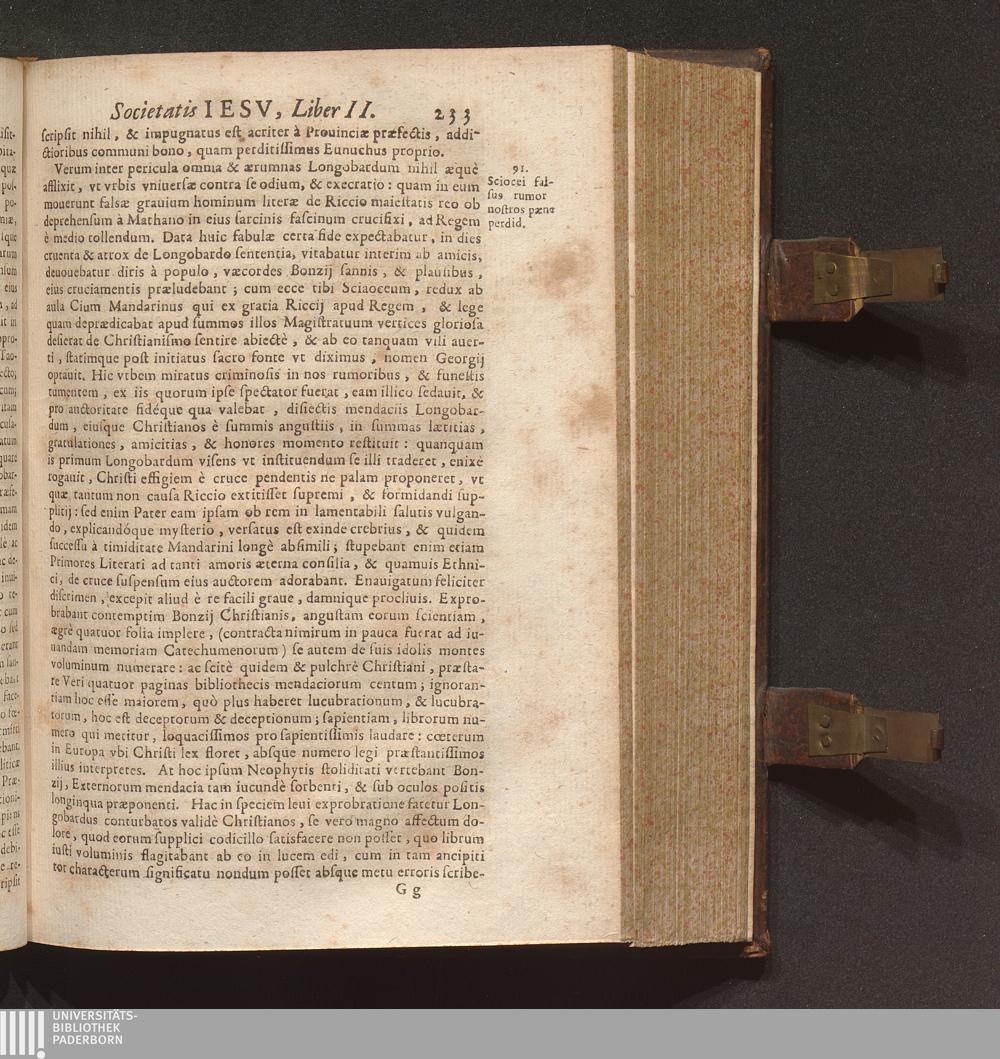 Societatis IESV, Liber II. 233
scripsit nihil, & impugnatus est acriter à Prouinciæ præfectis, addi-
ctioribus communi bono, quam perditissimus Eunuchus proprio.
Verum inter pericula omnia & ærumnas Longobardum nihil æquè
afflixit, vt vrbis vniuersæ contra se odium, & execratio: quam in eum
mouerunt falsæ grauium hominum literæ de Riccio maiestatis reo ob
deprehensum à Mathano in eius sarcinis fascinum crucifixi, ad Regem
è medio tollendum. Data huic fabulæ certa fide expectabatur, in dies
cruenta & atrox de Longobardo sententia, vitabatur interim ab amicis,
deuouebatur diris à populo, væcordes Bonzij sannis, & plausibus,
eius cruciamentis præludebant; cum ecce tibi Sciaoceum, redux ab
aula Cium Mandarinus qui ex gratia Riccij apud Regem, & lege
quam deprædicabat apud summos illos Magistratuum vertices gloriosa
desierat de Christianismo sentire abiectè, & ab eo tanquam vili auer-
ti, statimque post initiatus sacro fonte vt diximus, nomen Georgij
optauit. Hic vrbem miratus criminosis in nos rumoribus, & funestis
tumentem, ex iis quorum ipse spectator fuerat, eam illico sedauit, &
pro auctoritate fidéque qua valebat, disiectis mendaciis Longobar-
dum, eiusque Christianos è summis angustiis, in summas lætitias,
gratulationes, amicitias, & honores momento restituit: quanquam
is primum Longobardum visens vt instituendum se illi traderet, enixè
rogauit, Christi effigiem è cruce pendentis ne palam proponeret, vt
quæ tantum non causa Riccio extitisset supremi, & formidandi sup-
plitij: sed enim Pater eam ipsam ob rem in lamentabili salutis vulgan-
do, explicandóque mysterio, versatus est exinde crebrius, & quidem
successu à timiditate Mandarini longè absimili; stupebant enim etiam
Primores Literati ad tanti amoris æterna consilia, & quamuis Ethni-
ci, de cruce suspensum eius auctorem adorabant. Enauigatum feliciter
discrimen, excepit aliud è re facili graue, damnique procliuis. Expro-
brabant contemptim Bonzij Christianis, angustam eorum scientiam,
ægrè quatuor folia implere, (contracta nimirum in pauca fuerat ad iu-
uandam memoriam Catechumenorum) se autem de suis idolis montes
voluminum numerare: ac scitè quidem & pulchrè Christiani, præsta-
re Veri quatuor paginas bibliothecis mendaciorum centum; ignoran-
tiam hoc esse maiorem, quò plus haberet lucubrationum, & lucubra-
torum, hoc est deceptorum & deceptionum; sapientiam, librorum nu-
mero qui metitur, loquacissimos pro sapientissimis laudare: cœterum
in Europa vbi Christi lex floret, absque numero legi præstantissimos
illius interpretes. At hoc ipsum Neophytis stoliditati vertebant Bon-
zij, Externorum mendacia tam iucundè sorbenti, & sub oculos positis
longinqua præponenti. Hac in speciem leui exprobratione fatetur Lon-
gobardus conturbatos validè Christianos, se vero magno affectum do-
lore, quod eorum supplici codicillo satisfacere non posset, quo librum
iusti voluminis flagitabant ab eo in lucem edi, cum in tam ancipiti
tot characterum significatu nondum posset absque metu erroris scribe-
G g
91.
Sciocei fal-
sus rumor
nostros pæne
perdid.
UNIVERSITÄTS-
BIBLIOTHEK
PADERBORN